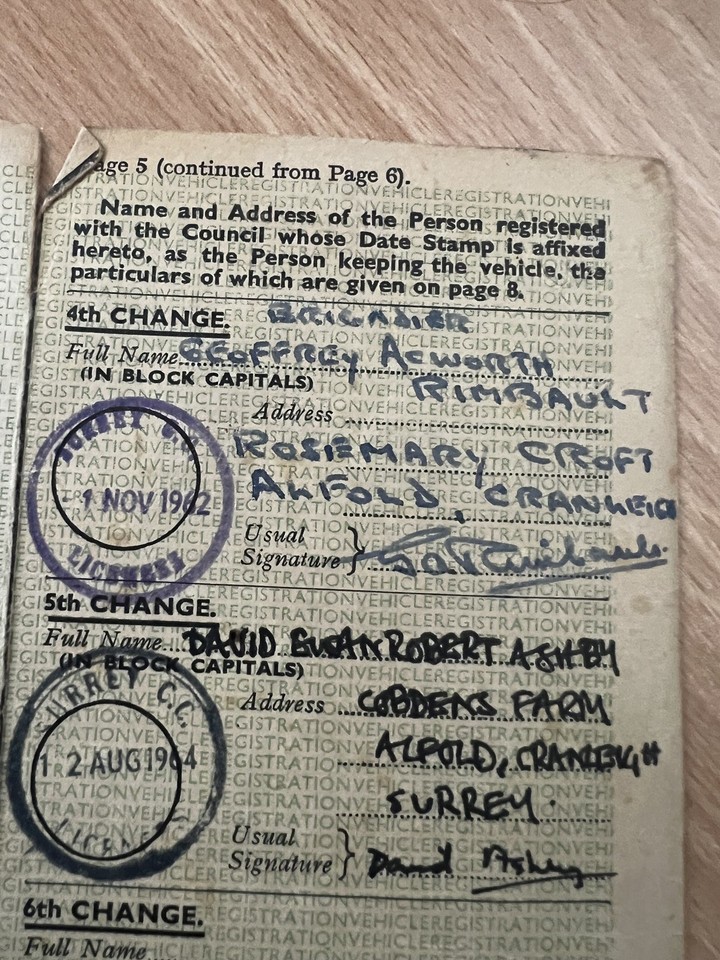 age 5 (continued from Page 6).
Name and Address of the Person registered
with the Council whose Date Stamp is affixed
hereto, as the Person keeping the vehicle, the
particulars of which are given on page 8.
4th CHANGE. BRIGADIER
Full Name GEOFFREY ACWORTH
(IN BLOCK CAPITALS) RIMBAULT
Address
ROSEMARY CROFT
ALFOLD, CRANLEIGH
SURREY C.C.
1 NOV 1962
LICENCES
Usual
Signature }
5th CHANGE.
Full Name DAVID EUSAN ROBERT ASHBY
(IN BLOCK CAPITALS)
Address COBDENS FARM
ALFOLD, CRANLEIGH
SURREY.
SURREY C.C.
1 2 AUG 1964
Usual
Signature } David Ashby
6th CHANGE.
Full Name